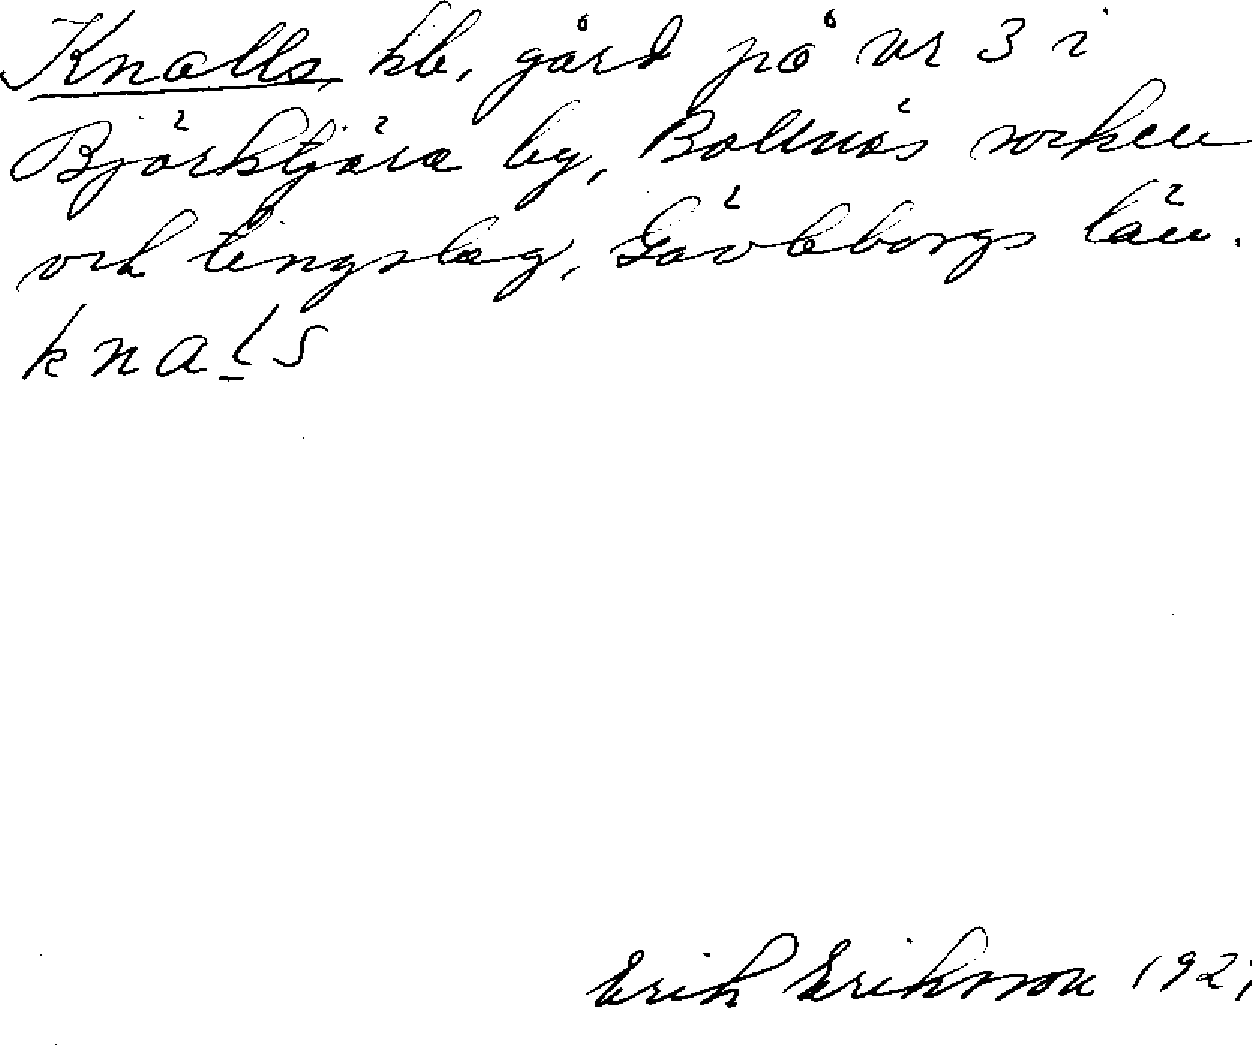 Knalls, kb. gård på nr 3 i
Björktjära by, Bollnäs socken
och tingslag, Gävleborgs län.
knaḻs
Erik Eriksson 192